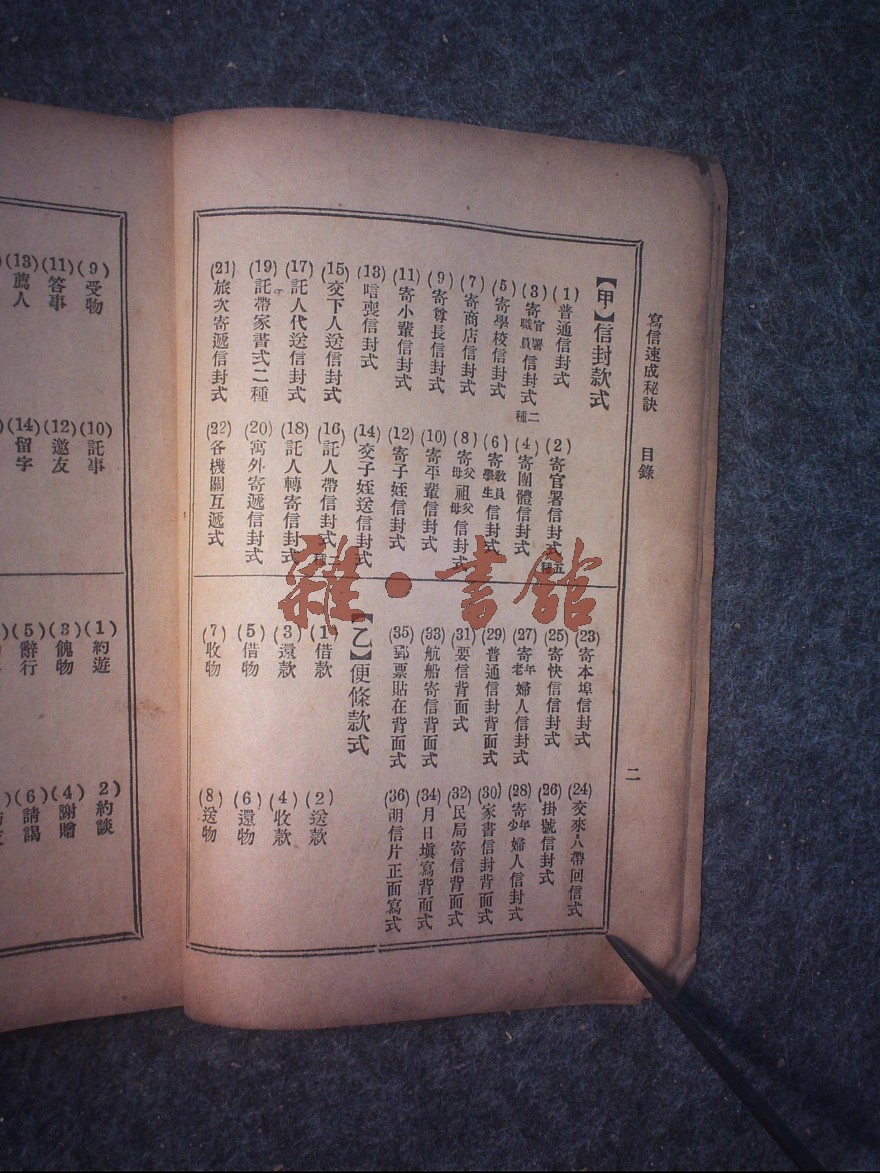 寫信速成秘訣 目錄
二
【甲】信封款式
(1)普通信封式
(2)寄官署信封式五種
(3)寄官署職員信封式二種
(4)寄團體信封式
(5)寄學校信封式
(6)寄教員學生信封式
(7)寄商店信封式
(8)寄父母祖父母信封式
(9)寄尊長信封式
(10)寄平輩信封式
(11)寄小輩信封式
(12)寄子姪信封式
(13)唁喪信封式
(14)交子姪送信封式
(15)交下人送信封式
(16)託人帶信封式二種
(17)託人代送信封式
(18)託人轉寄信封式
(19)託帶家書式二種
(20)寓外寄遞信封式
(21)旅次寄遞信封式
(22)各機關互遞式
(23)寄本埠信封式
(24)交來人帶回信式
(25)寄快信信封式
(26)掛號信封式
(27)寄年老婦人信封式
(28)寄年少婦人信封式
(29)普通信封背面式
(30)家書信封背面式
(31)要信背面式
(32)民局寄信背面式
(33)航船寄信背面式
(34)月日塡寫背面式
(35)郵票貼在背面式
(36)明信片正面寫式
【乙】便條款式
(1)借款
(2)送款
(3)還款
(4)收款
(5)借物
(6)還物
(7)收物
(8)送物
(9)受物
(10)託事
(11)答事
(12)邀友
(13)薦人
(14)留字
(1)約遊
2)約談
(3)餽物
(4)謝贈
(5)辭行
(6)請謁
雜·書館